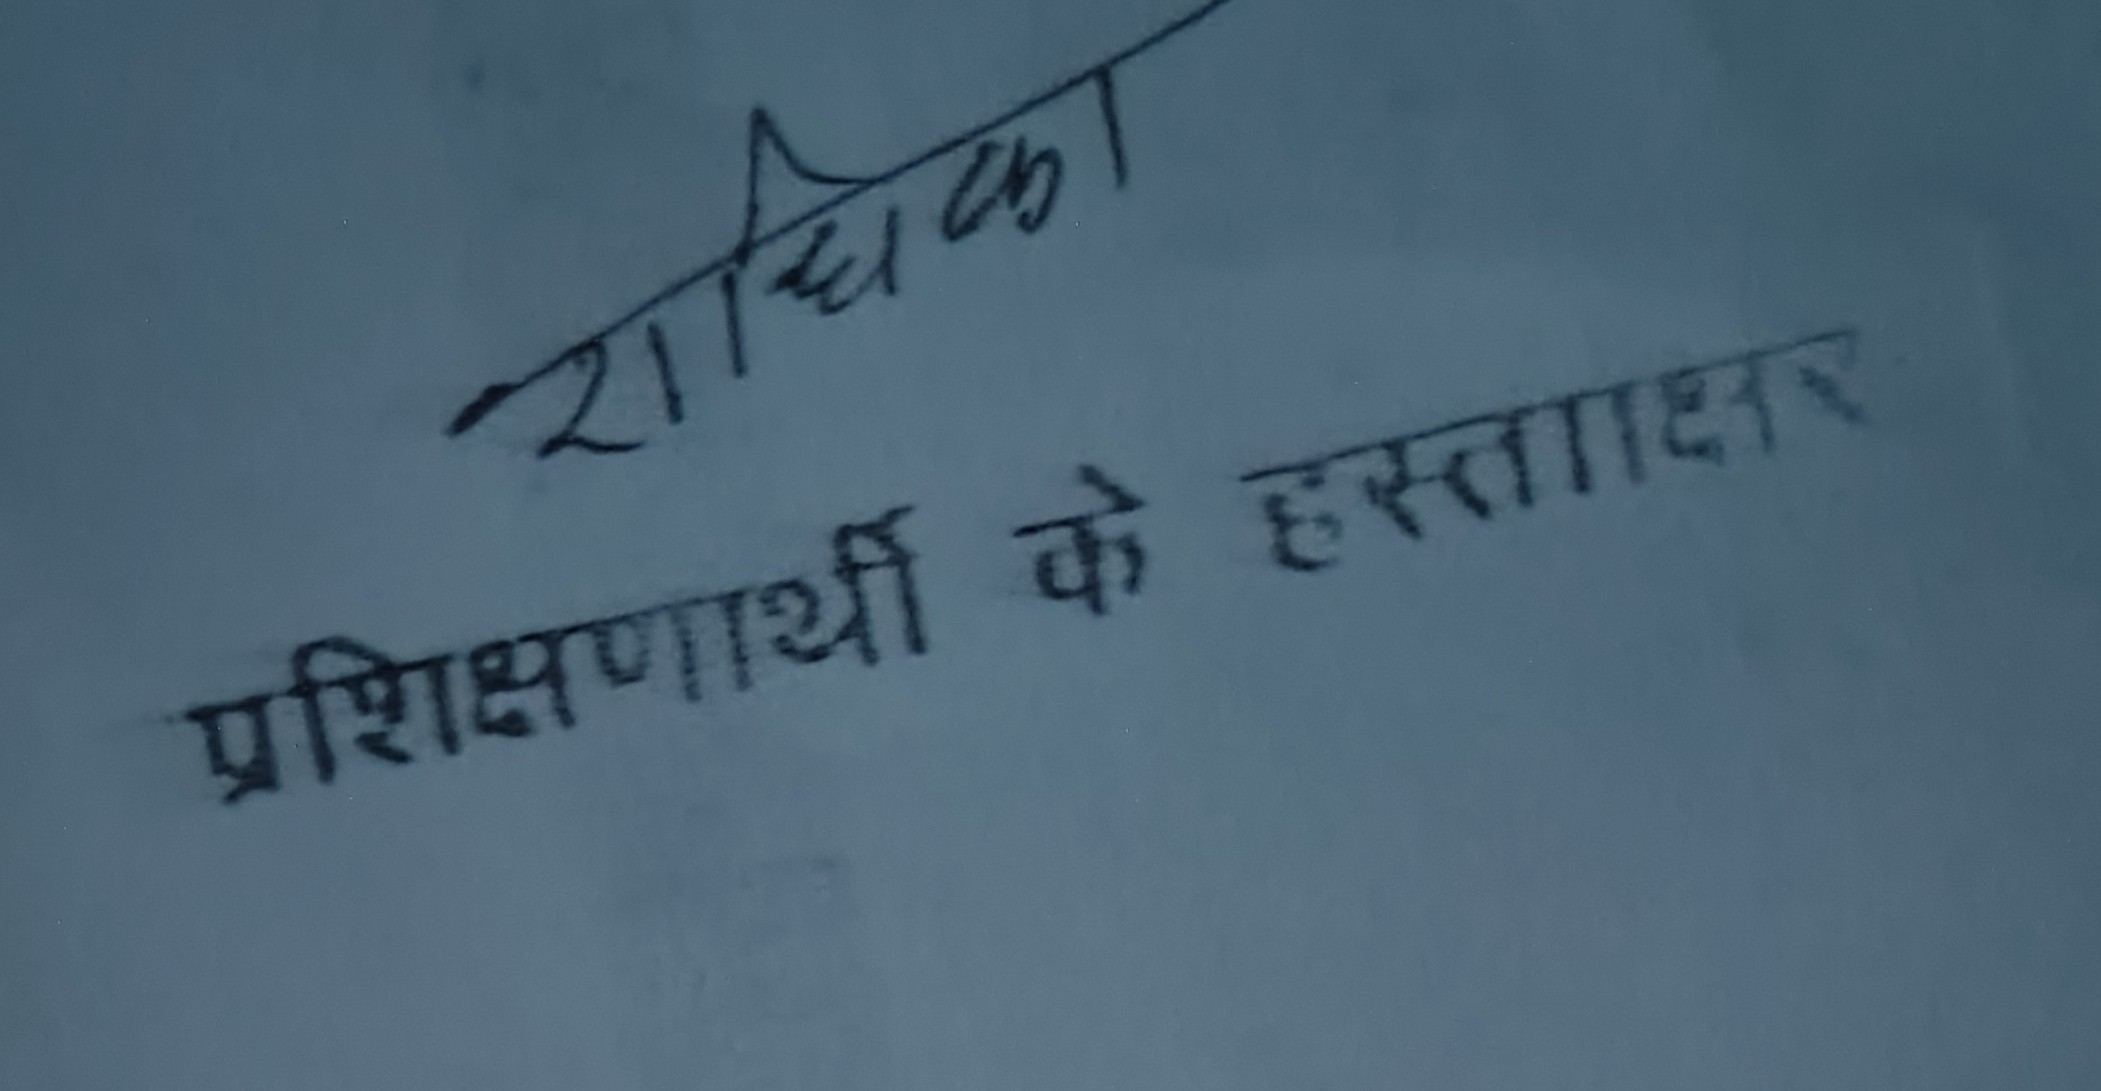 राधिका
प्रशिक्षणार्थी के हस्तााक्षर